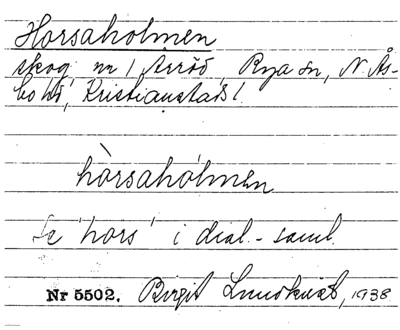 Horsaholmen
skog, nr 1 Arröd, Rya sn, N. Ås-
bo hd, Kristianstads l.
hòrsahólmen
Se 'hors' i dial.-saml.
Nr 5502. Birgit Lundkvist, 1938